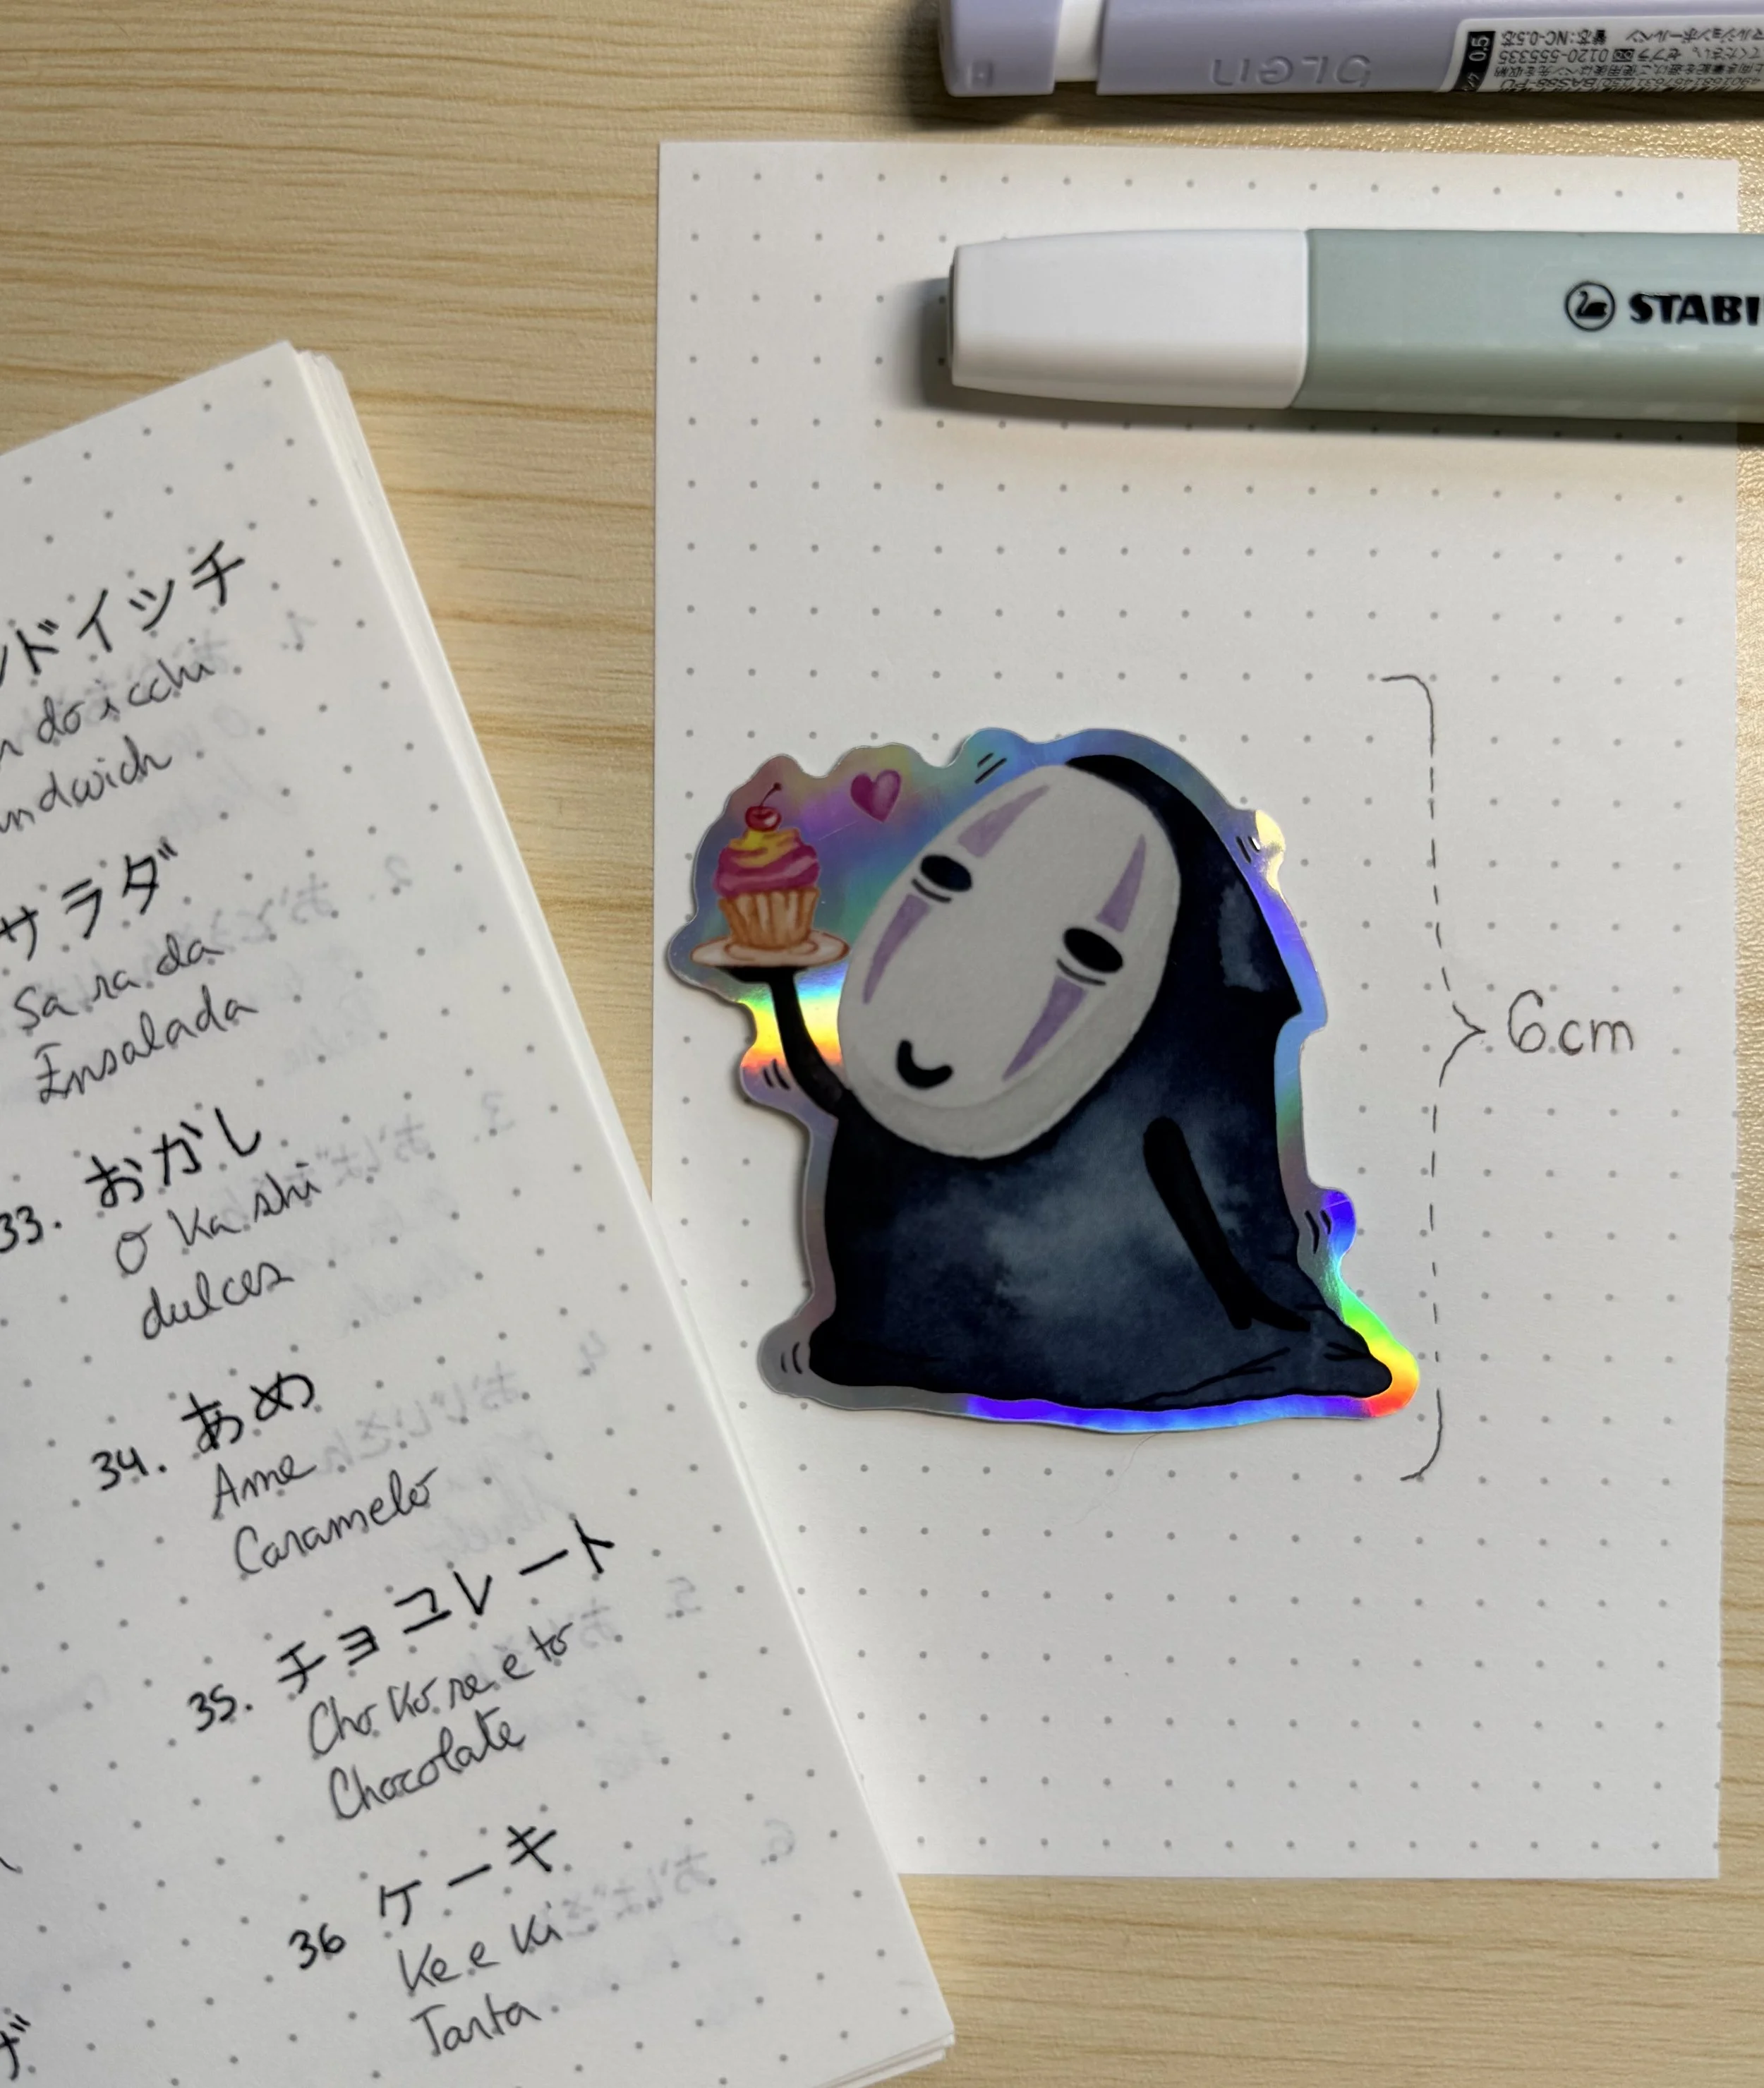 bLen
0.5
NC-0.5芯
0120-555335
STABI
ンドイッチ
n do i cchi
ndwich
サラダ
Sa ra da
Ensalada
33. おかし
O Ka shi
dulces
34. あめ
Ame
Caramelo
35. チョコレート
Cho Ko re e to
Chocolate
36 ケーキ
Ke e Ki
Tarta
6cm